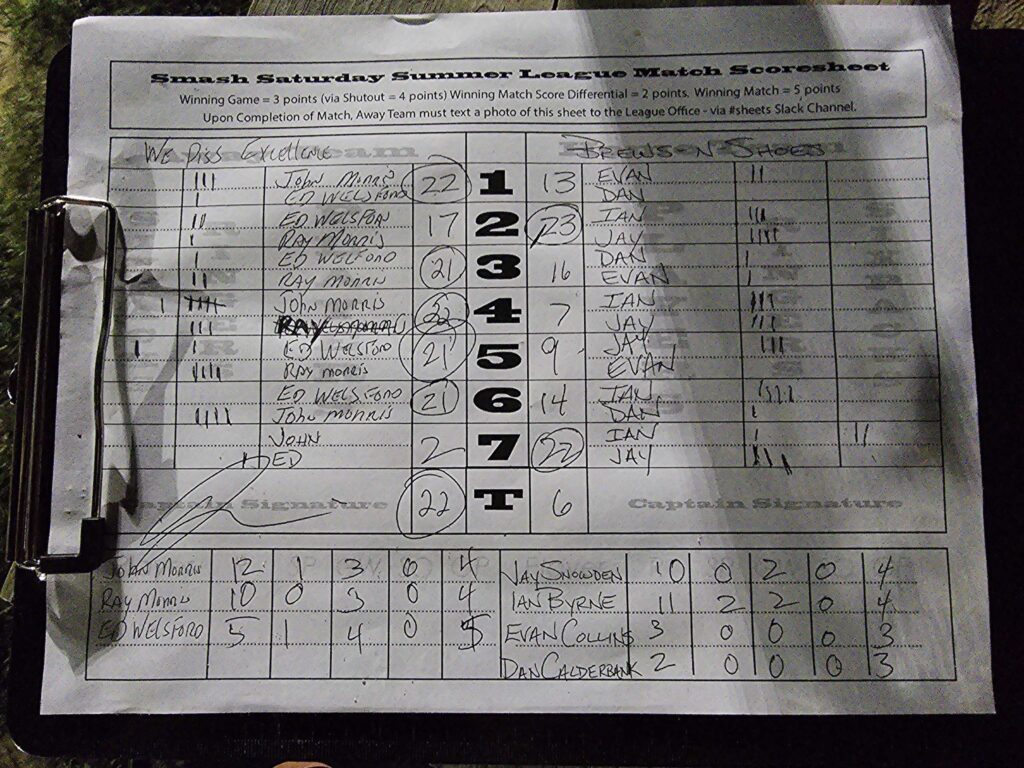 Smash Saturday Summer League Match Scoresheet
Winning Game = 3 points (via Shutout = 4 points) Winning Match Score Differential = 2 points. Winning Match = 5 points
Upon Completion of Match, Away Team must text a photo of this sheet to the League Office - via #sheets Slack Channel.
WE PISS EXCELLENCE BREWS ON SHOES
III JOHN MORRIS 22 1 13 EVAN II
I ED WELSFORD DAN
II ED WELSFORD 17 2 23 IAN III
I RAY MORRIS JAY IIII
I ED WELSFORD 21 3 16 DAN I
II RAY MORRIS EVAN I
I JOHN MORRIS 22 4 7 IAN III
III RAY JAY III
I I ED WELSFORD 21 5 9 JAY III
IIII RAY MORRIS EVAN
ED WELSFORD 21 6 14 IAN IIII
IIII JOHN MORRIS DAN I
JOHN 2 7 22 IAN I II
I ED JAY III
Captain Signature 22 T 6 Captain Signature
JOHN MORRIS 12 1 3 0 4 JAY SNOWDEN 10 0 2 0 4
RAY MORRIS 10 0 3 0 4 IAN BYRNE 11 2 2 0 4
ED WELSFORD 5 1 4 0 5 EVAN COLLINS 3 0 0 0 3
DAN CALDERBANK 2 0 0 0 3